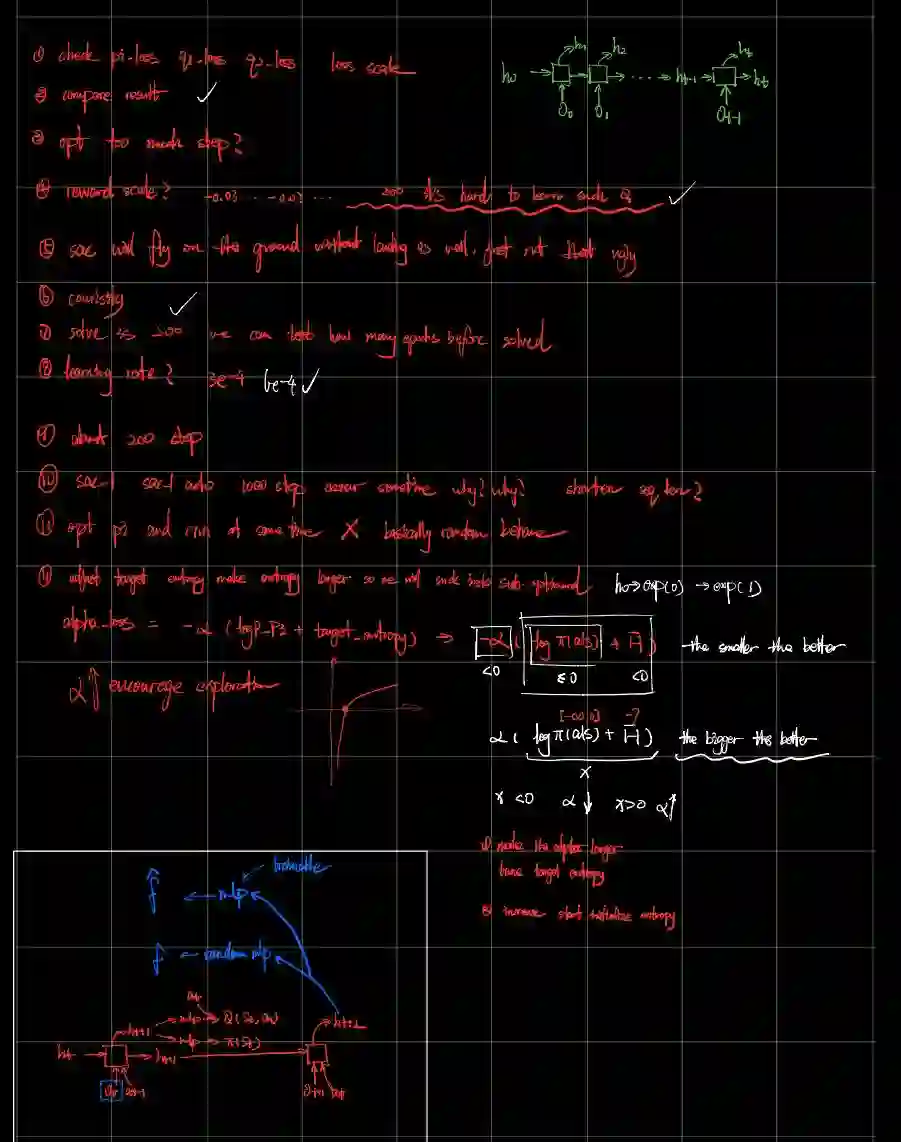 ① check pi-loss q1-loss q2-loss loss scale
② compare result ✓
③ opt too much step?
④ reward scale? -0.03 ... -0.03 ... 200 it's hard to learn such Q ✓
⑤ sac will fly on the ground without landing as well, just not that ugly
⑥ ✓
⑦ solve is 200 we can test how many epochs before solved
⑧ learning rate? 3e-4 6e-4 ✓
⑨ about 200 step
⑩ sac-1 sac-1 auto 1000 step occur sometime why? why? shorten seq_len?
opt pi and rnn at same time X basically random behave
adjust target entropy make entropy larger so we will suck into sub-optimal h0→exp(0) → exp(1)
alpha_loss = -α (logp_pi + target_entropy) ⇒ -α ( log π(a|s) + H̄ ) the smaller the better
<0 ≤0 <0
α↑ encourage exploration
[-∞ 0] -?
α ( log π(a|s) + H̄ ) the bigger the better
x
x <0 α ↓ x>0 α↑
1) make the alpha larger
target entropy
2) increase start initialize entropy
h0 → h1 → h2 → ... → ht-1 → ht
ht
O0 O1 Ot-1
trainable
f̂ ← mlp
f ← random mlp
ht+1 → mlp →
mlp → π(st)
ht → ht+1
ht+2